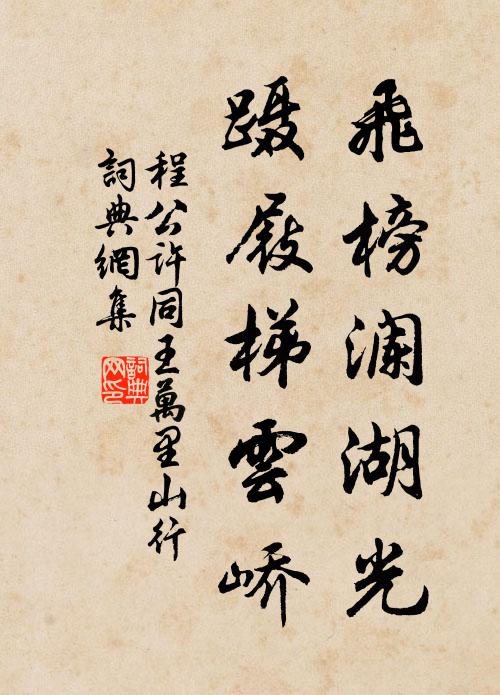 飛榜澜湖光
蹑屐梯雲峤
程公許同王萬里山行
詞典網集
詞典网印